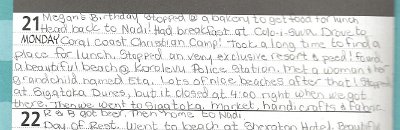 21 Megan's Birthday Stopped @ a bakery to get food for lunch
Head back to Nadi. Had breakfast at Colo-i-Suva. Drove to
MONDAY Coral Coast Christian Camp. Took a long time to find a
place for lunch. Stopped an very exclusive resort & peed! found
a beautiful beach @ Korolevu Police Station. Met a woman & her
grandchild named Eta. Lots of nice beaches after that! Stopped
at Sigatoka Dunes, but it closed at 4:00 right when we got
there. Then we went to Sigatoka, market, handicrafts &
22 R & B got beer. Then home to Nadi.
Day of Rest. Went to beach at Sheraton Hotel. Beautiful